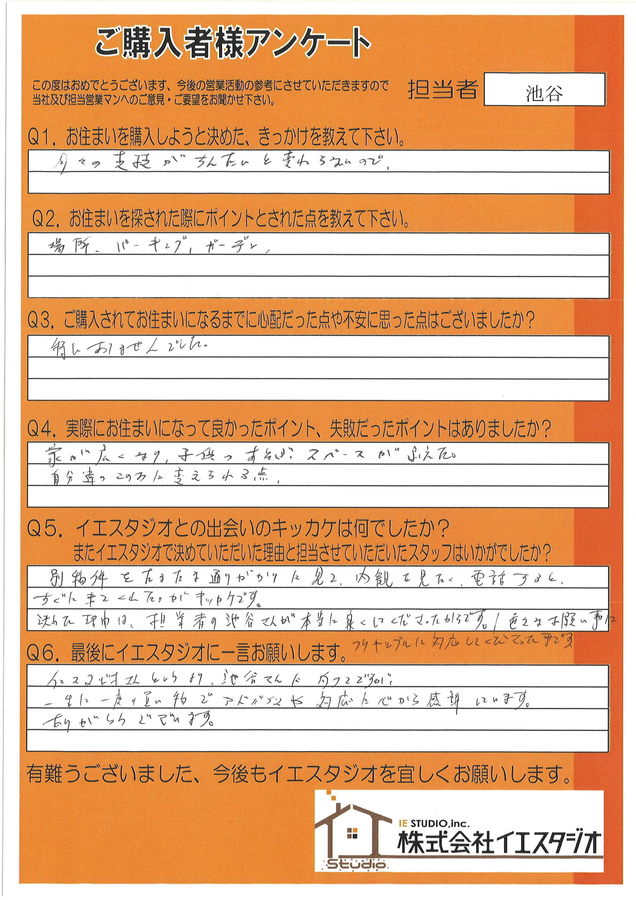 ご購入者様アンケート
この度はおめでとうございます、今後の営業活動の参考にさせていただきますので
当社及び担当営業マンへのご意見・ご要望をお聞かせ下さい。
担当者 池谷
Q1. お住まいを購入しようと決めた、きっかけを教えて下さい。
月々の支投がちんたいと変わらないので、
Q2. お住まいを探された際にポイントとされた点を教えて下さい。
場所、パーキング、ガーデン、
Q3. ご購入されてお住まいになるまでに心配だった点や不安に思った点はございましたか?
特にありませんでした。
Q4. 実際にお住まいになって良かったポイント、失敗だったポイントはありましたか?
家が広くなり、子供のあそぶスペースがふえた。
自分達のこのみに変えられる点、
Q5. イエスタジオとの出会いのキッカケは何でしたか?
またイエスタジオで決めていただいた理由と担当させていただいたスタッフはいかがでしたか?
別物件をたまたま通りがかりに見て、内観を見たく、電話すると、
すぐに来てくれたのがキッカケです。
決めた理由は、担当者の池谷さんが本当に良くしてくださったからです。/色々なお願い事に
フレキシブルに対応してくださった事です
Q6. 最後にイエスタジオに一言お願いします。
イエスタジオさんというより、池谷さんに向けてですが、
一生に一度の買い物でアドバイスや対応に心から感謝しています。
ありがとうございます。
有難うございました、今後もイエスタジオを宜しくお願いします。
IE STUDIO,inc.
株式会社イエスタジオ
Studio